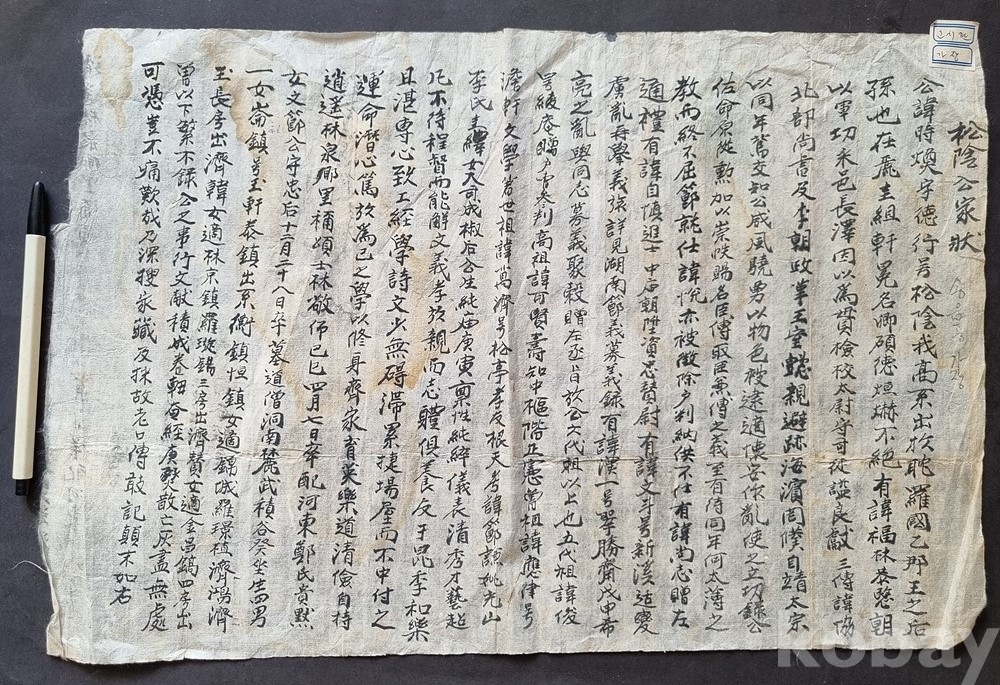 松陰公家狀
公諱時煥字德行号松陰我高系出於耽羅國乙那王之后
孫也在麗圭組軒冕名卿碩德烜爀不絕有諱福林恭愍朝
以軍功采邑長澤因以爲貫檢校太尉守司徒謚良獻三傳諱協
北部尚書及李朝政革王室懿親避跡海濱罔僕自靖太宗
以同年篤交知公威風驍勇以物色被逮適懷安作亂使之立功錄公
佐命原從勳加以崇秩賜名臣傳取臣無傳之義至有待同年何太薄之
教而終不屈節就仕諱悅亦被徵除戶判納供不仕有諱尚志贈左
通禮有諱自愼進士中庙朝陞資忠贊尉有諱文斗号新溪适變
虜亂再舉義旅詳見湖南節義募義錄有諱漢一号睪勝齋戊申希
亮之亂與同志募義聚穀贈左丞旨於公六代祖以上也五代祖諱俊
号緩庵贈戶曹參判高祖諱可賢壽知中樞階正憲曾祖諱應律号
澹軒文學著世祖諱萬濟号松亭孝友根天考諱節謙妣光山
李氏主繹女大司成椒后公生純庙庚寅稟性純粹儀表清秀才藝超
凡不待程督而能解文義孝於親而志體俱養友于昆季和樂
且湛專心致工經學詩文少無碍滯累捷場屋而不中付之
運命潛心篤於爲己之學以修身齊家育英樂道清儉自持
逍遙林泉鄉里稱頌士林敬佈己巳四月七日卒配河東鄭氏贄默
女文節公守忠后十二月二十八日卒墓道僧洞南麓武積谷癸坐生四男
一女崙鎮号玉軒泰鎮出系衡鎮恒鎮女適錦城羅璟植濟鴻濟
玉長房出濟韓女適林京鎮羅璇錫三房出濟贊女適金昌鍋四房出
曾以下繁不錄公之事行文献積成卷軸會經庚燹散亡灰盡無處
可憑豈不痛歎哉乃深搜家藏及採故老口傳敢記顛末如右
고시전
가장
kobay